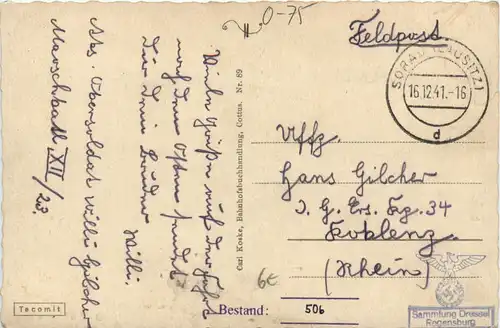 0-75
Feldpost.
SORAU (LAUSITZ)
16.12.41.-16
d
Viele Grüße auf der Fahrt
nach dem Osten sendet
Dir Dein Bruder
Willi
Abs. Obersoldat Willi Gilcher
Marschbatl. XII
/23.
Carl Koske, Bahnhofsbuchhandlung, Cottus. Nr. 89
Uffz.
Hans Gilcher
J. G. Ers. Kp. 34
Koblenz
(Rhein)
6€
Tacomit
Bestand: 506
Sammlung Drussel
Regensburg